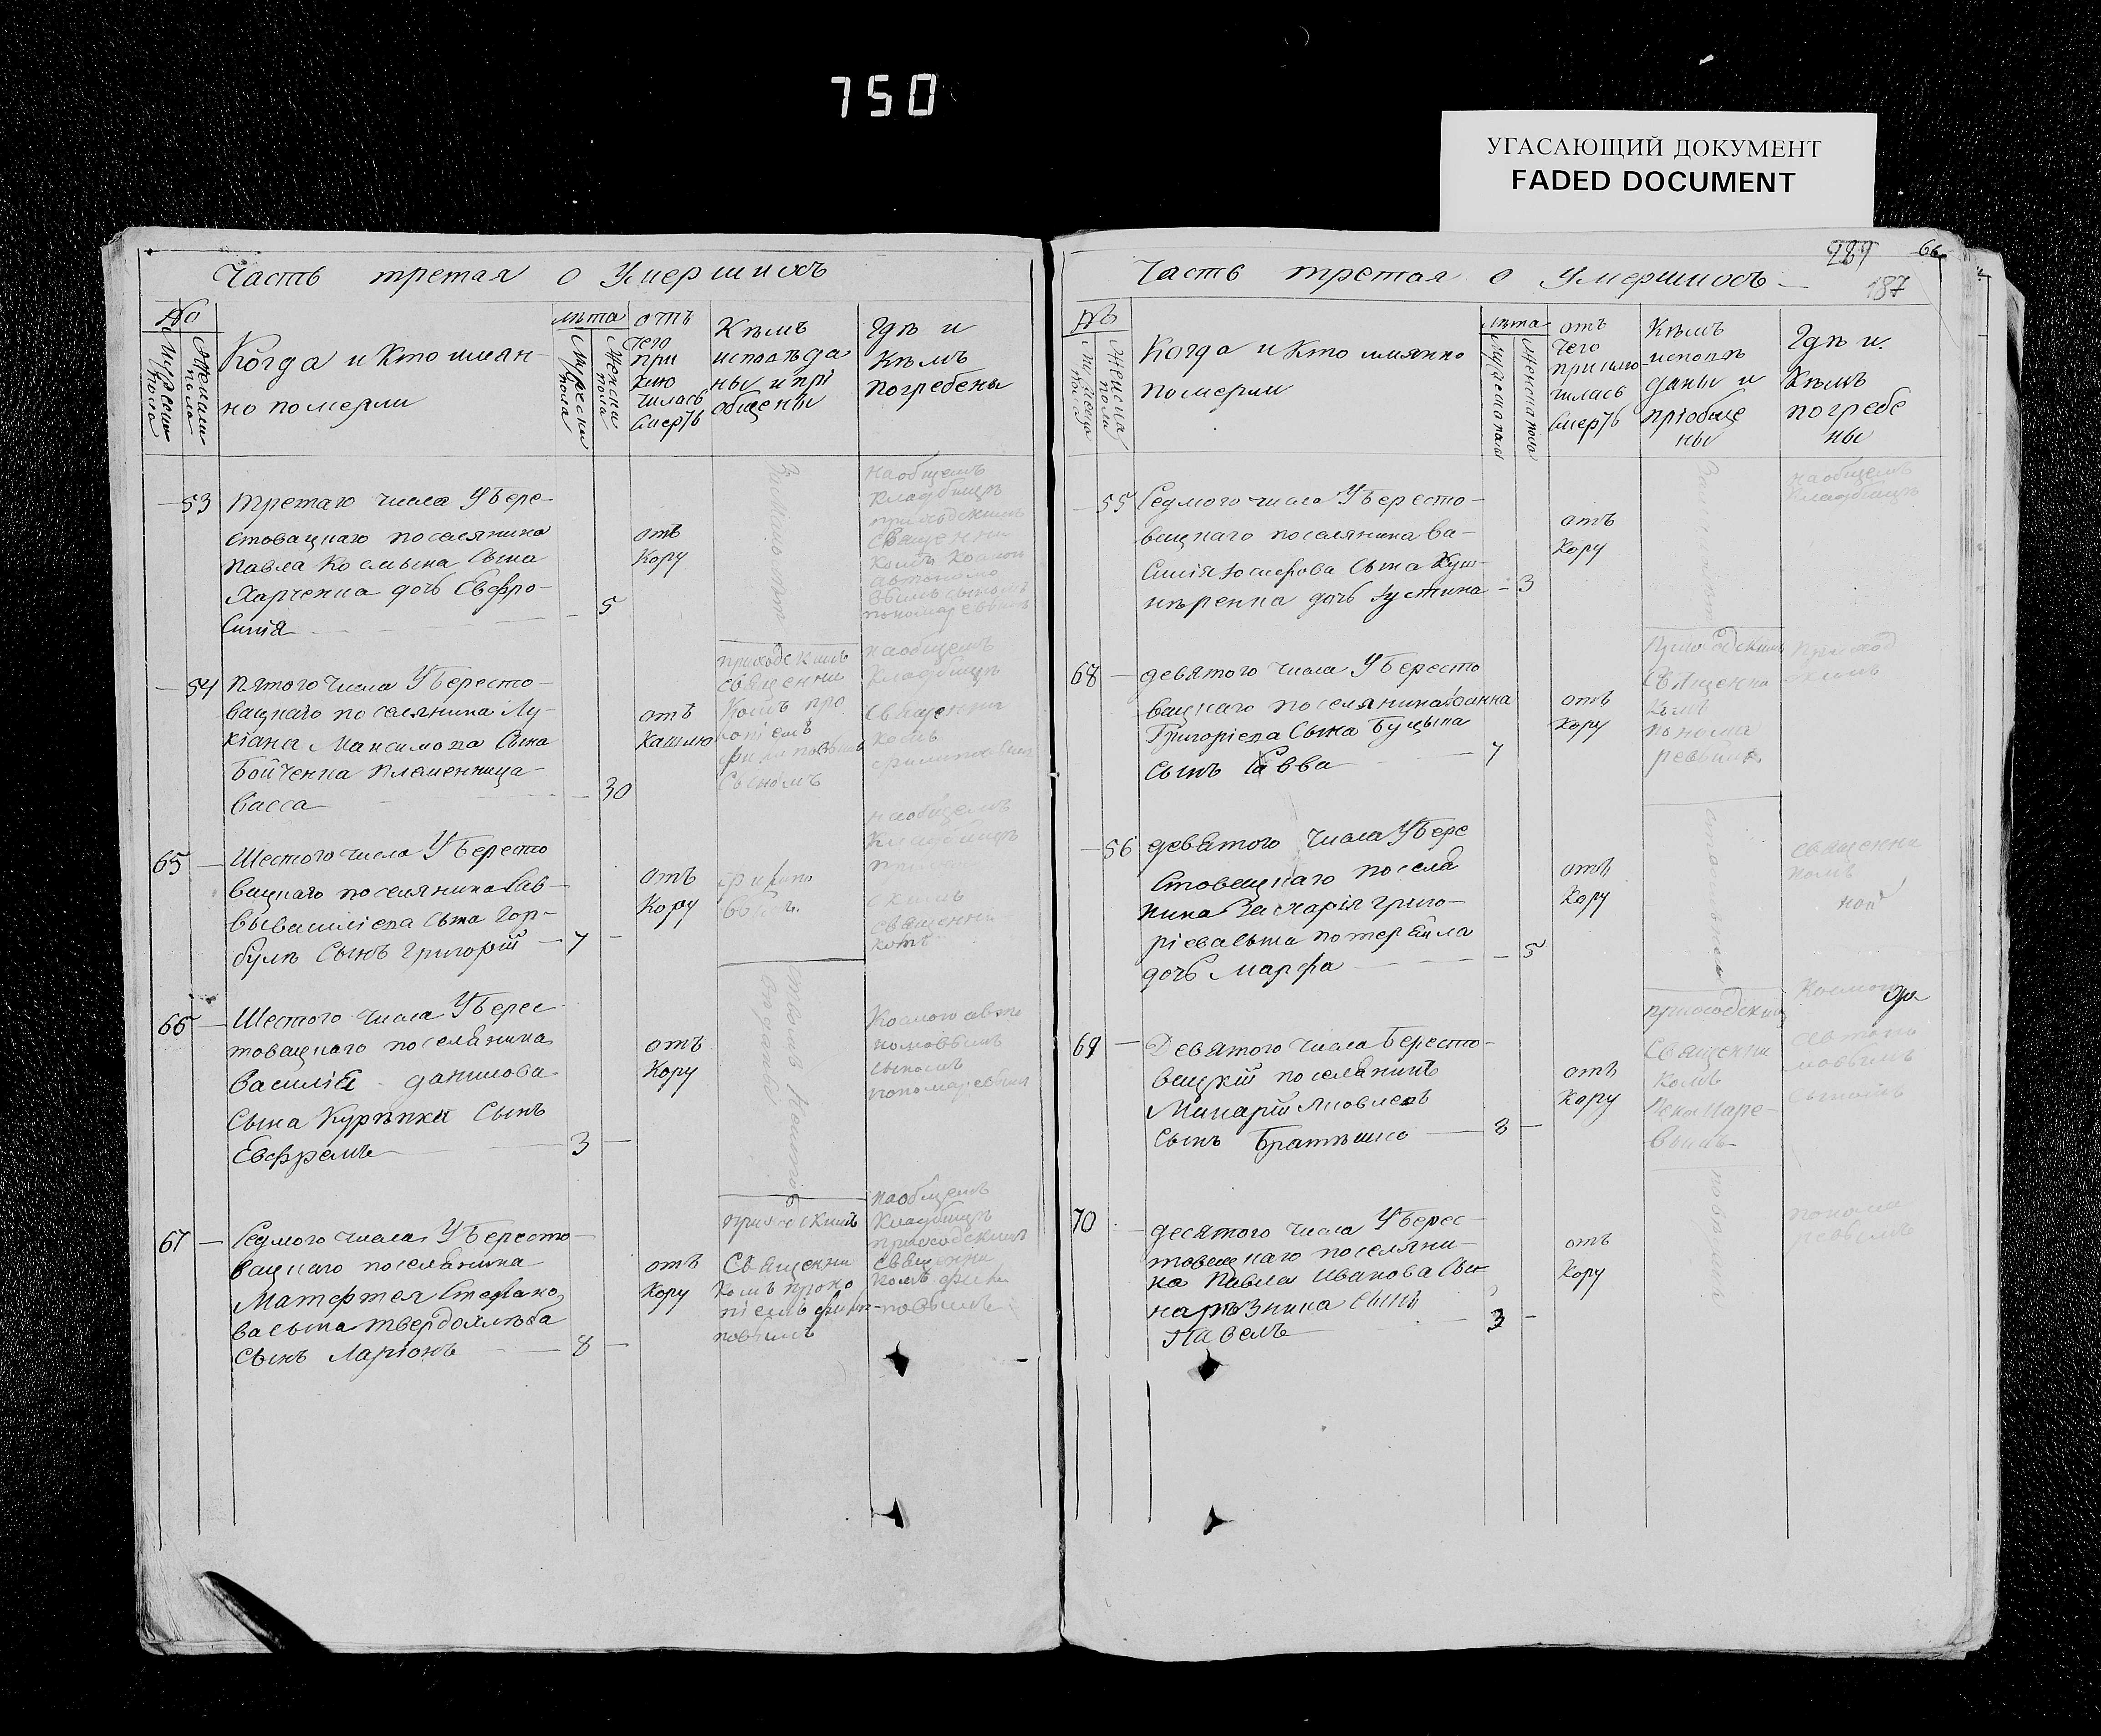 750
УГАСАЮЩИЙ ДОКУМЕНТ
FADED DOCUMENT
Часть третая о Умершихъ
№
Мужеска пола
Женска пола
Когда и кто имян-
но померли
лѣта
Мужеска пола
Женска пола
отъ
чего
при
клю
чилась
смерть
Кѣмъ
исповѣда
ны и прі
общены
Гдѣ и
Кѣмъ
погребены
53 Третаго числа У Бере-
стовацкаго поселянина
Павла Космына сына
Харченка дочь Евфро-
синія
5
отъ
Кору
на общемъ
кладбищѣ
приходскимъ
священни
комъ Космою
автономо
вымъ сыномъ
пономаревымъ
54 Пятого числа У Бересто-
вацкаго поселянина Лу-
кіана Максимова сына
Бойченка племенница
Васса
30
отъ
кашлю
приходскимъ
священни
комъ про
копіемъ
филиповымъ
сыномъ
на общемъ
кладбищѣ
священни
комъ
65 Шестого числа У Бересто
вацкаго поселянина Сав-
вы Василіева сына Гор-
булѣ сынъ Григорій
7
отъ
Кору
на общемъ
кладбищѣ
скимъ
священни
комъ
66 Шестого числа У Берес
товацкаго поселянина
Василія данилова
сына Курѣпки сынъ
Евфремъ
3
отъ
Кору
Космою авто
номовымъ
сыномъ
пономаревымъ
67 Седмого числа У Бересто-
вацкаго поселянина
Матфтея Стефано
ва сына твердохлѣба
сынъ Ларіонъ
8
отъ
Кору
приходскимъ
Священни
комъ проко
піемъ фили-
повымъ
на общемъ
кладбищѣ
приходскимъ
священни
комъ фили
повымъ
Часть третая о Умершихъ
289
66
187
№
Мужеска пола
Женска пола
Когда и кто имянно
померли
лѣта
Мужеска пола
Женска пола
отъ
чего
приклю-
чилась
смерть
Кѣмъ
исповѣ
даны и
пріобще
ны
Гдѣ и
Кѣмъ
погребе
ны
55 Седмого числа У Бересто-
вацкаго поселянина Ва-
силія Юсифова сына Куш-
нѣренка дочь Іустина
3
отъ
Кору
на общемъ
кладбищѣ
68 девятого числа У Бересто
вацкаго поселянина Іоанна
Григоріева сына Буцына
сынъ Савва
7
отъ
Кору
приходскимъ
священни
комъ
понома
ревымъ
приход
скимъ
56 девятого числа У Бере
стовацкаго поселя
нина Захарія Григо-
ріева сына потеряйла
дочь Марфа
5
отъ
Кору
священни
комъ
69 Девятого числа Бересто-
вацкій поселянинъ
Макарій Яковлевъ
сынъ Братышко
8
отъ
Кору
приходскимъ
Священни
комъ
Понамаре-
вымъ
Космою
автоно
мовымъ
сыномъ
70 десятого числа У Берес-
товацкаго поселяни-
на Павла Иванова сы-
на рѣзника сынъ
Павелъ
3
отъ
Кору
понома
ревымъ